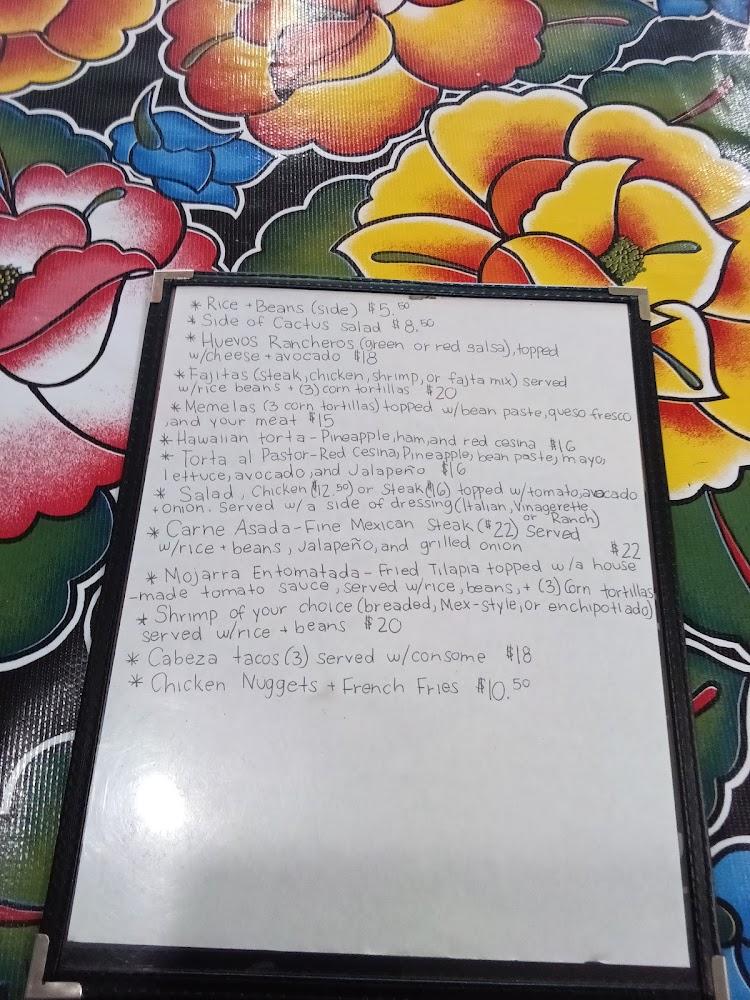 * Rice + Beans (side) $5.50
* Side of Cactus salad $8.50
* Huevos Rancheros (green or red salsa), topped
w/cheese + avocado $18
* Fajitas (steak, chicken, shrimp, or fajta mix) served
w/rice beans + (3) corn tortillas $20
* Memelas (3 corn tortillas) topped w/bean paste, queso fresco
, and your meat $15
* Hawaiian torta - Pineapple, ham, and red cesina $16
* Torta al Pastor - Red Cesina, Pineapple, bean paste, mayo,
lettuce, avocado, and Jalapeño $16
* Salad, Chicken ($12.50) or Steak ($16) topped w/tomato, avocado
+ onion. Served w/ a side of dressing (Italian, Vinagerette,
or Ranch)
* Carne Asada - Fine Mexican Steak ($22) served
w/rice + beans, Jalapeño, and grilled onion $22
* Mojarra Entomatada - Fried Tilapia topped w/a house
-made tomato sauce, served w/rice, beans, + (3) Corn tortillas
* Shrimp of your choice (breaded, Mex-style, or enchipotlado)
served w/rice + beans $20
* Cabeza tacos (3) served w/consome $18
* Chicken Nuggets + French Fries $10.50